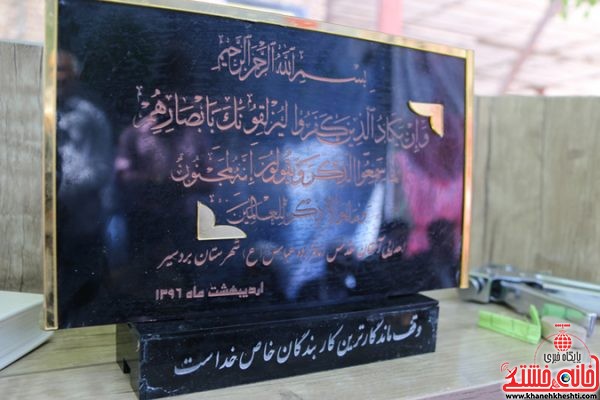 بِسْمِ اللهِ الرَّحْمنِ الرَّحِيمِ
وَإِنْ يَكَادُ الَّذِينَ كَفَرُوا لَيُزْلِقُونَكَ بِأَبْصَارِهِمْ
لَمَّا سَمِعُوا الذِّكْرَ وَيَقُولُونَ إِنَّهُ لَمَجْنُونٌ
وَمَا هُوَ إِلَّا ذِكْرٌ لِلْعَالَمِينَ
اهدایی آستان مقدس (ع) شهرستان بردسیر
اردیبهشت ماه ۱۳۹۶
وقف ماندگارترین کار بندگان خاص خداست
پایگاه خبری
خانه خشتی
www.khanehkheshti.com